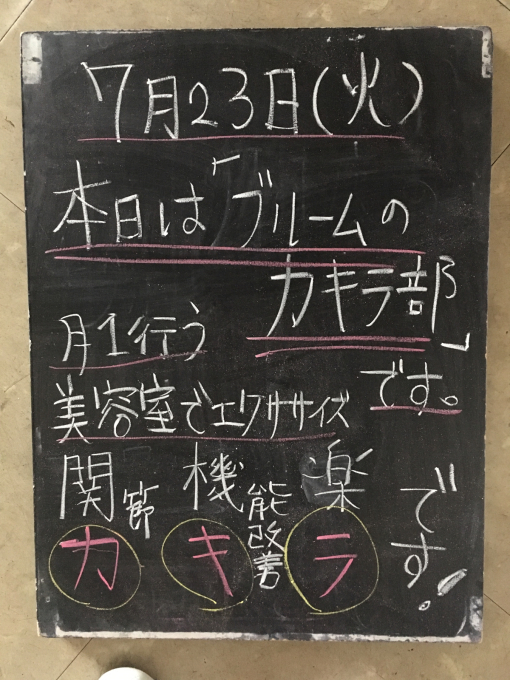 7月23日(火)
本日は「ブルームの
カキラ部」
です。
月1行う
美容室でエクササイズ
関節 機能改善 楽
カ キ ラ です!